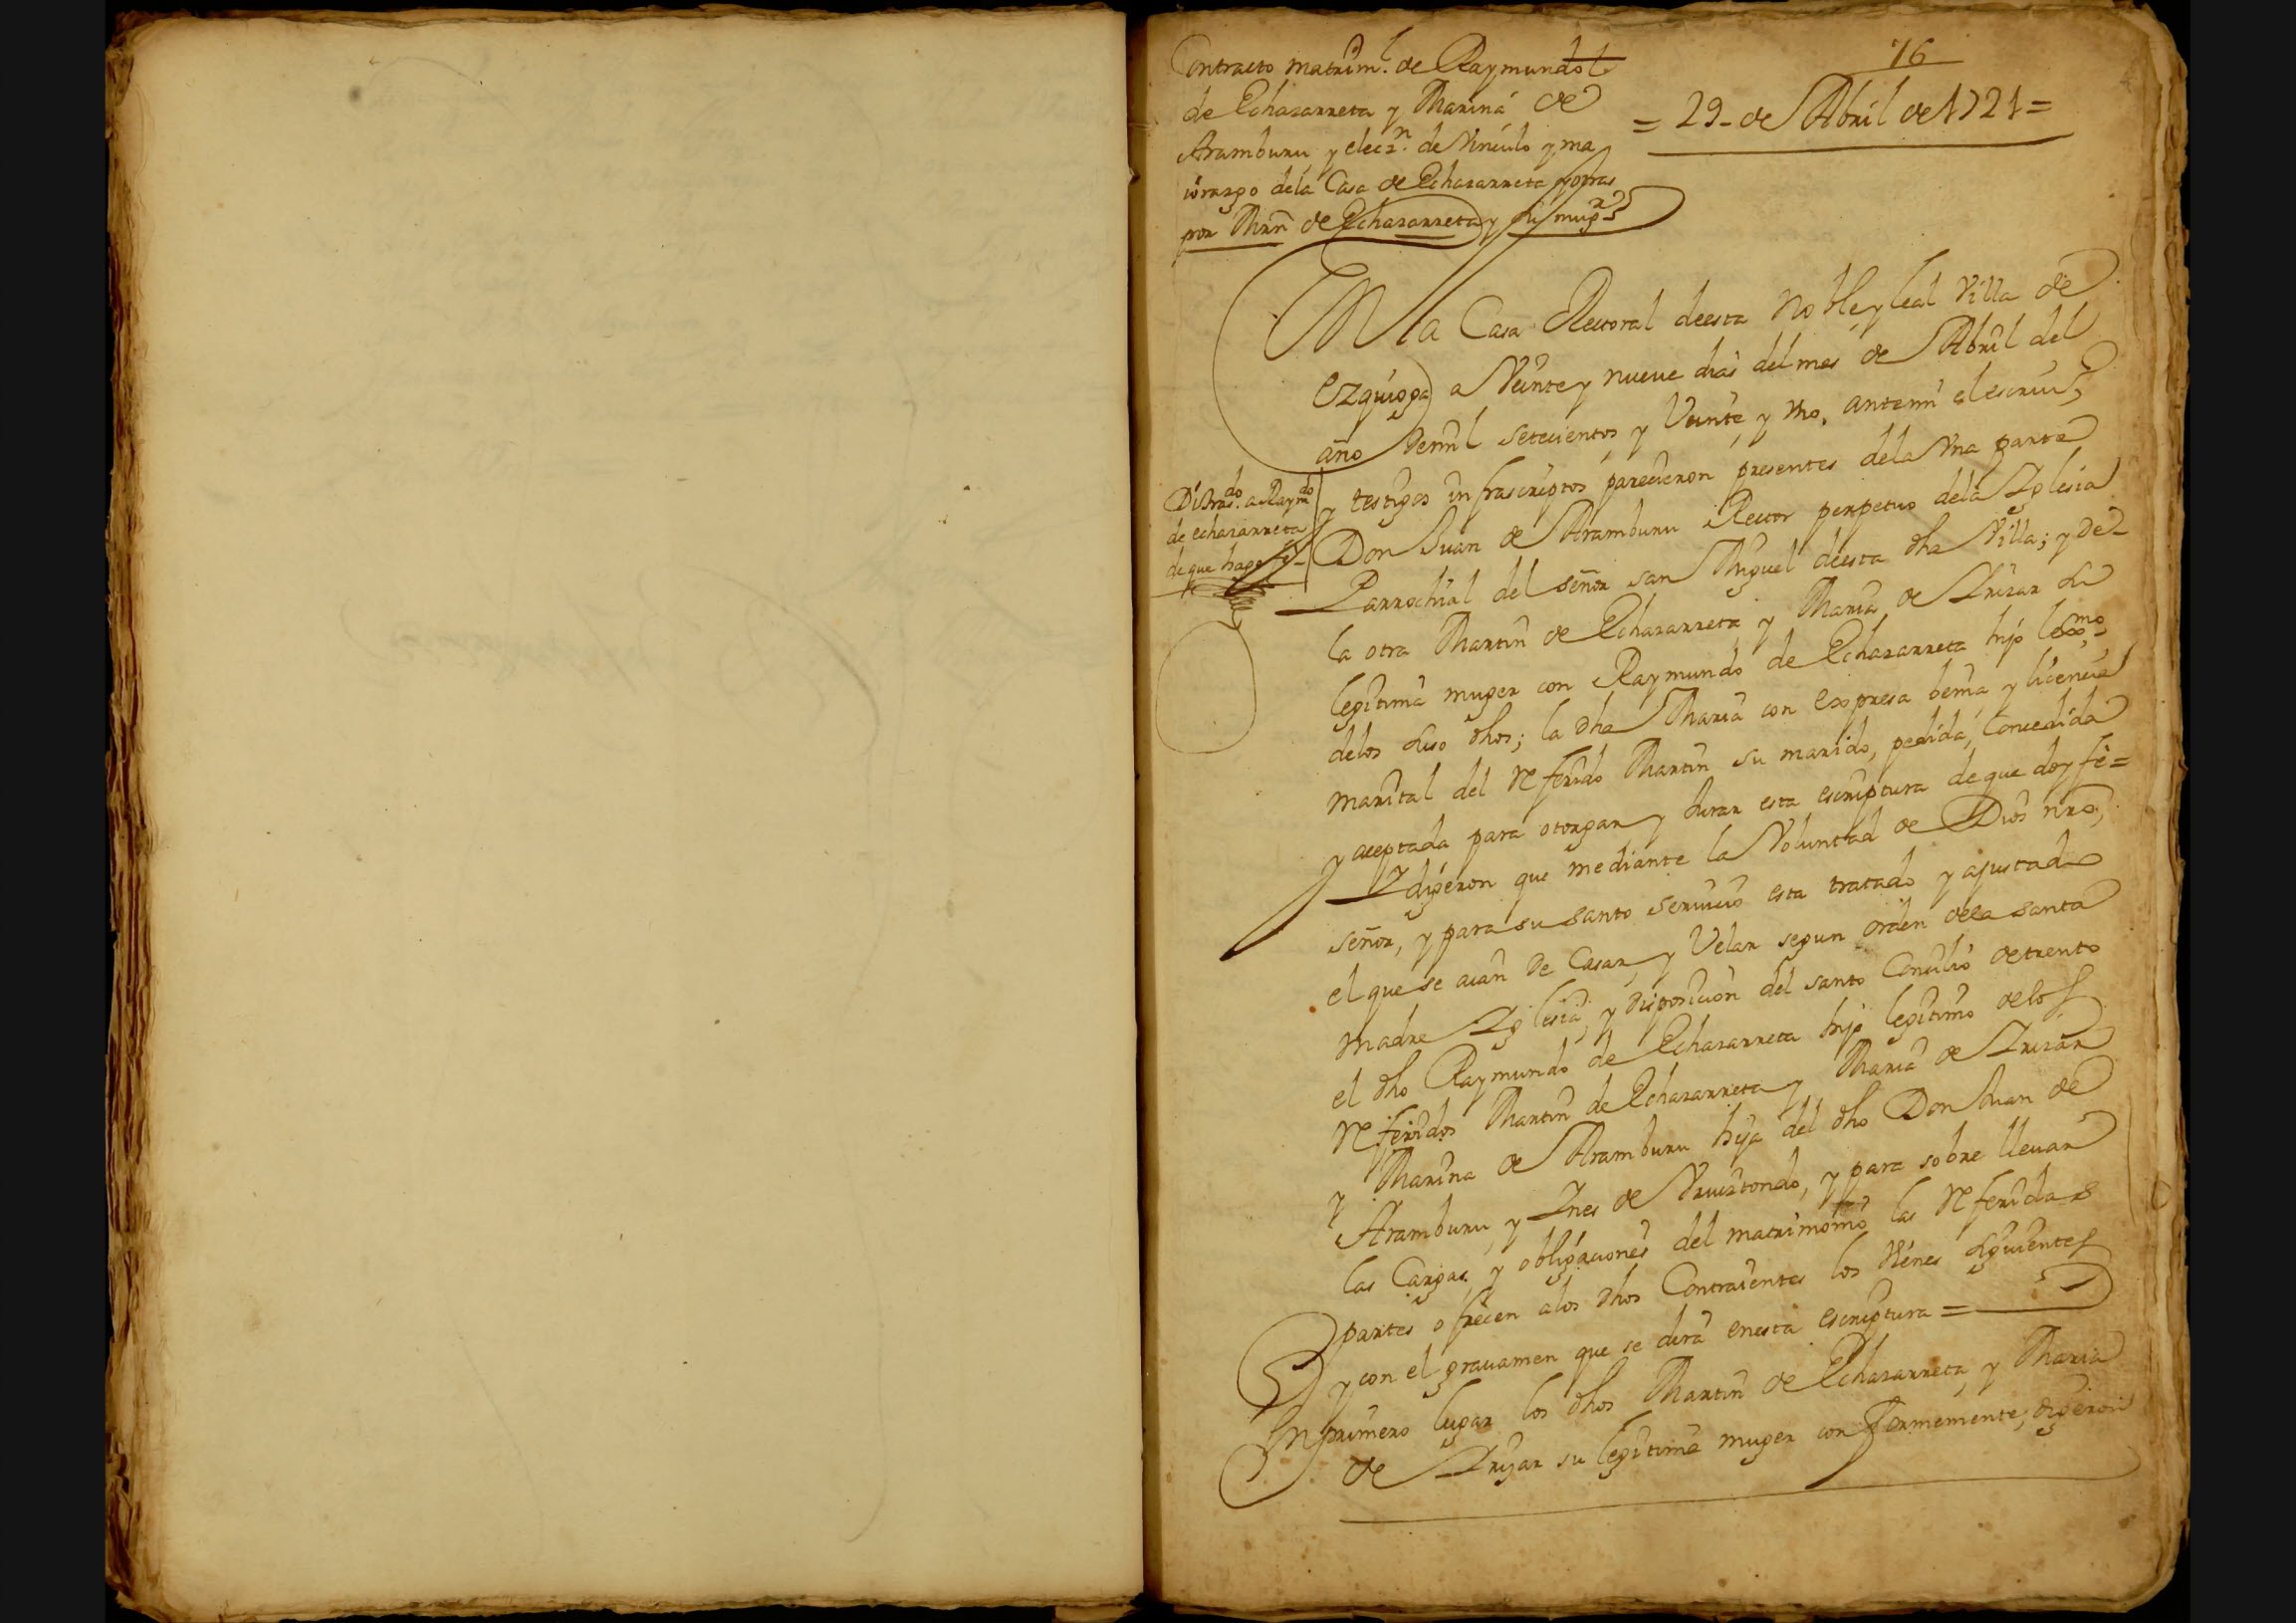 Contracto matrim.l de Raymundo
de Echazarreta y Marina de
Aramburu y elecz.n de Vinculo y ma
iorazgo dela Casa de Echazarreta y otras
por Mrn de Echazarreta y su mug.r
76
= 29 - de Abril de 1721 =
EN la Casa Rectoral deesta Noble y leal Villa de
Ezquioga a Veinte y nueve dias del mes de Abril del
año demil setecientos y Veinte y Vno, antemi el escriu.o
y testigos infrascriptos parecieron presentes dela Vna parte
Don Juan de Aramburu Rector perpetuo dela Iglesia
Parrochial del señor san Miguel deesta dha Villa; y de
la otra Martin de Echazarreta y Maria de Irizar su
legitima muger con Raymundo de Echazarreta hijo lexmo,
delos suso dhos; la dha Maria con expresa benia y licencia
marital del referido Martin su marido, pedida, Concedida
y aceptada para otorgar y Jurar esta escriptura de que doy fè =
Y digeron que mediante la Voluntad de Dios nro,
señor, y para su santo seruicio esta tratado y ajustado
el que se aian de Casar, y Velar segun orden dela santa
madre Iglesia, y disposicion del santo Concilio de trento
el dho Raymundo de Echazarreta hijo legitimo delos
referidos Martin de Echazarreta y Maria de Irizar
y Marina de Aramburu hija del dho Don Juan de
Aramburu, y Ines de Vruiztondo, y para sobre lleuar
las Cargas, y obligaciones del matrimonio las referidas
partes ofrecen alos dhos Contraientes los vienes siguientes
y con el grauamen que se dirà enesta escriptura =
En primero lugar los dhos Martin de Echazarreta, y Maria
de Irizar su legitima muger conformemente, digeron
Di tras.do a Raym.do
de echazarreta
de que hago fe -